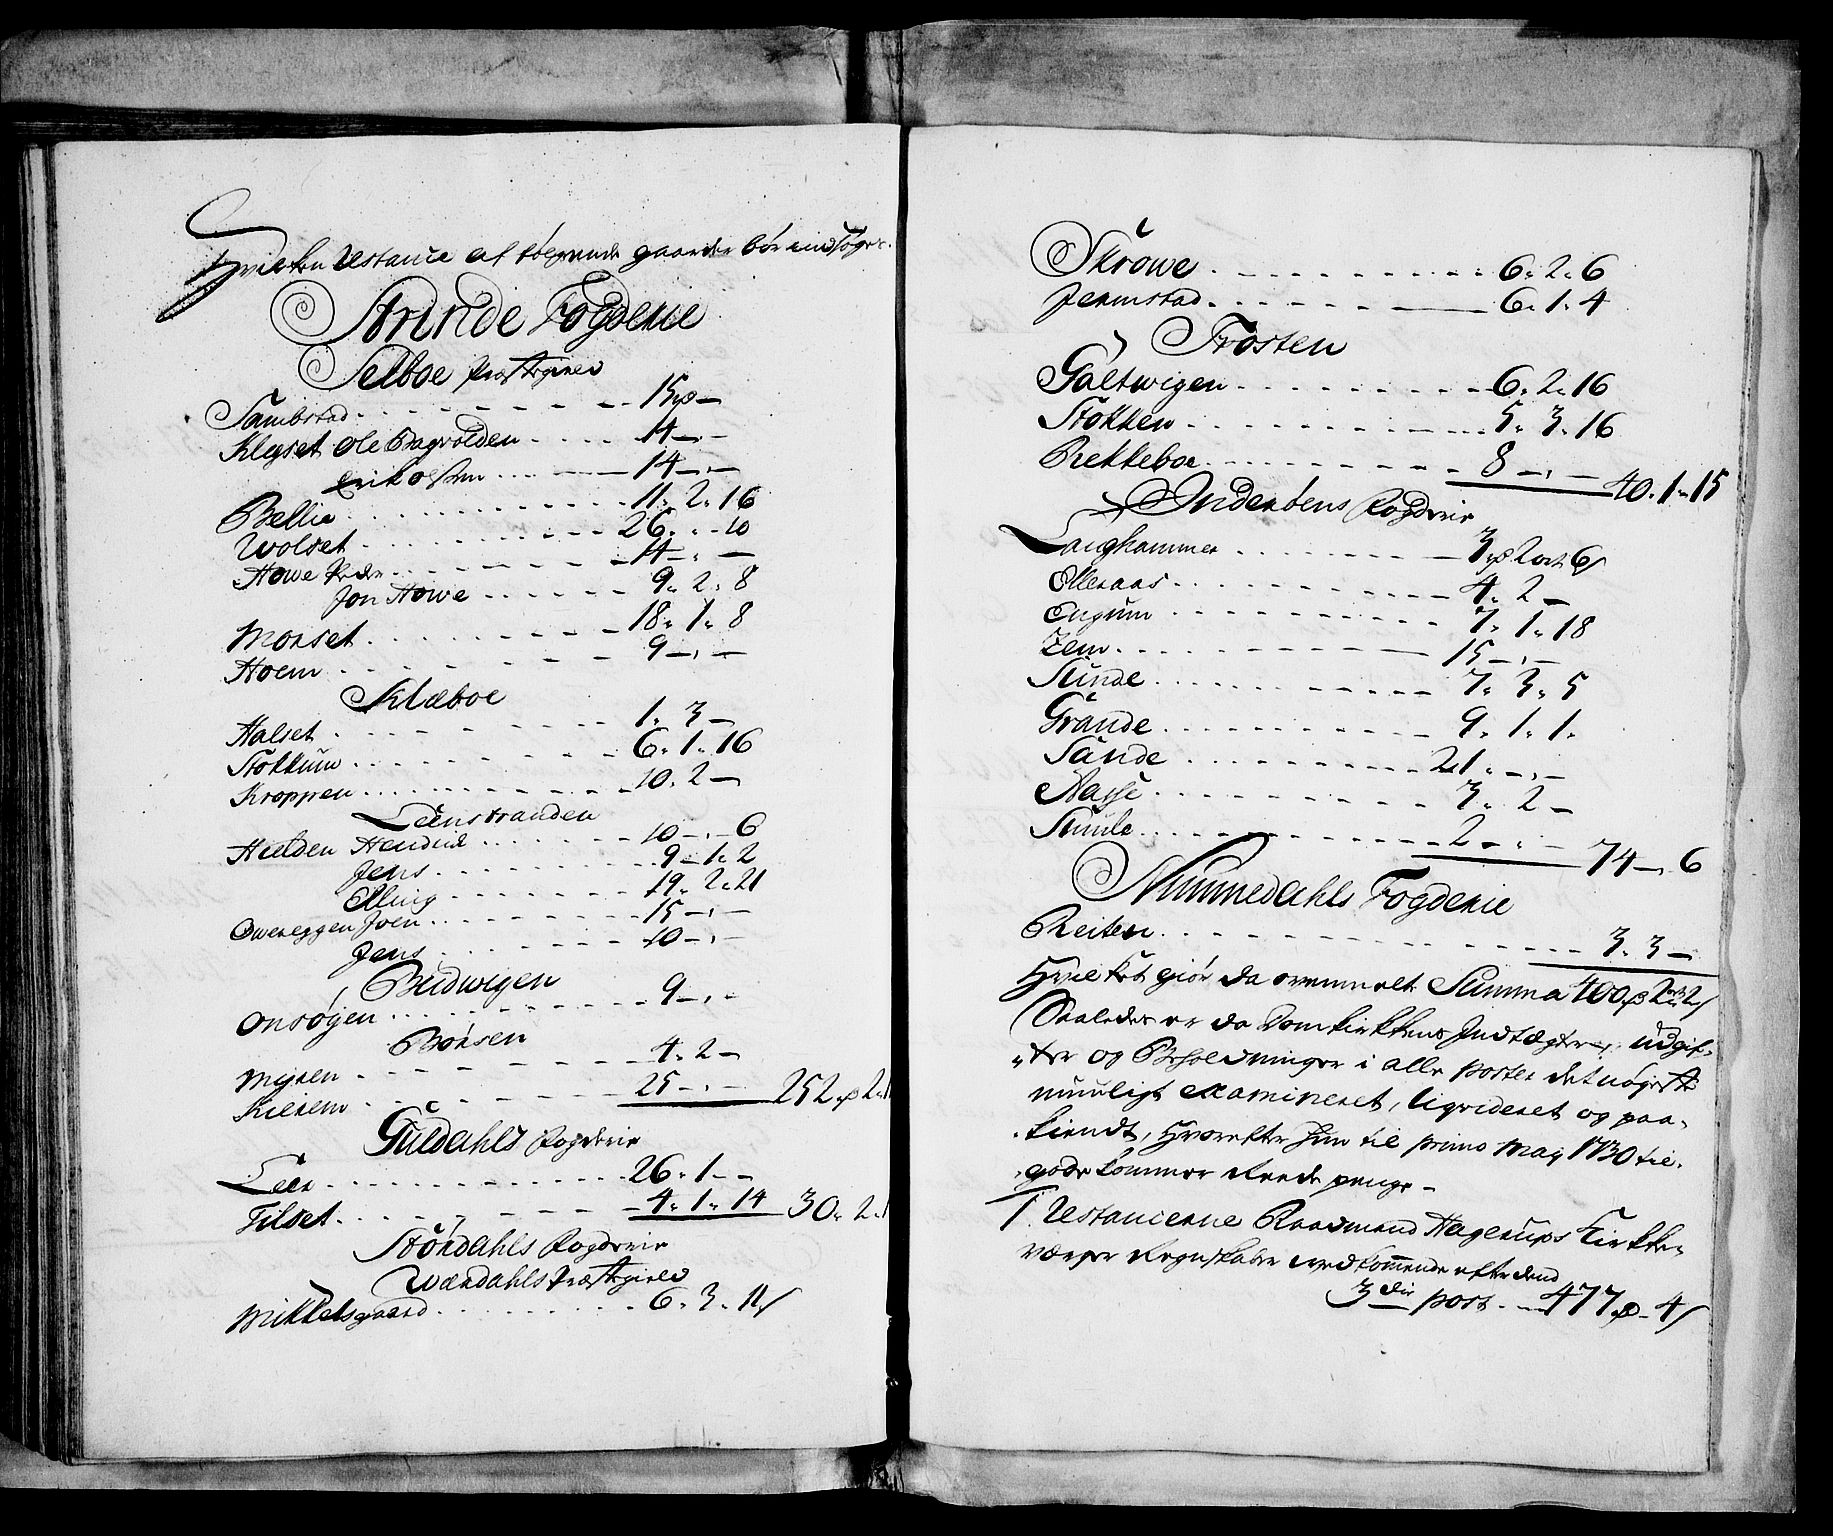 Hvilken Restance af følgende gaarder bør indsøges.
Strinde Fogderie
Selboe Præstegield
Sambstad 15 –
Klegset Ole Engvolden 14 – , –
Erik Olsen 14 – , –
Bellia 11. 2. 16
Wolset 26. . 10
Howe Peder 14 – . –
Jon Howe 9. 2. 8
Morset 18. 1. 8
Hoem 9 – . –
Klæboe
Halset 1. 3 –
Stokkum 6. 1. 16
Kroppen 10. 2 –
Leenstranden
Hielden Hendrick 10 – . – 6
Jens 9 – 1. 2
Elling 19. 2. 21
Owereggen Joen 15 – . –
Jens 10 – . –
Budwigen
Onsøyen 9 – . –
Børsen
Myren 4. 2 –
Kierem 25 – . – 252 2.
Guldahls Fogderie
Leer 26. 1 – –
Tilset 4. 1. 14 30. 2.
Størdahls Fogderie
Wærdahls Præstegield
Mikkelsgaard 6. 3. 11
Skrowe 6. 2. 6
Jermstad 6. 1. 4
Frosten
Galtwigen 6. 2. 16
Stokken 5. 3. 16
Rekkeboe 8 – . – 40. 1. 15
Inderøens Fogderie
Langhammer 3 2 ort 6
Olleraas 4. 2 –
Engum 7. 1. 18
Zem 15 – . –
Sunde 7. 3. 5
Grande 9. 1. 1.
Sande 21. – . –
Nasse 3. 2 –
Stunle 2 – . – 74 – . 6
Nummedahls Fogderie
Reiten 3. 3 –
Hvilket giør da ovenmelt Summa 400 2 ort 2
Saaledes er da Domkirkkens Indtægter, udgif-
ter og Beholdninger i alle poster det nøyeste
muuligt examineret, liqvideret og paa-
kiendt, hvorefter hun til primo May 1730 til-
gode kommer Reede penge –
I. Restancerne Raadmand Hagerups Kirkke-
værger Regnskaber vedkommende efter dend
3die post 477 – 4